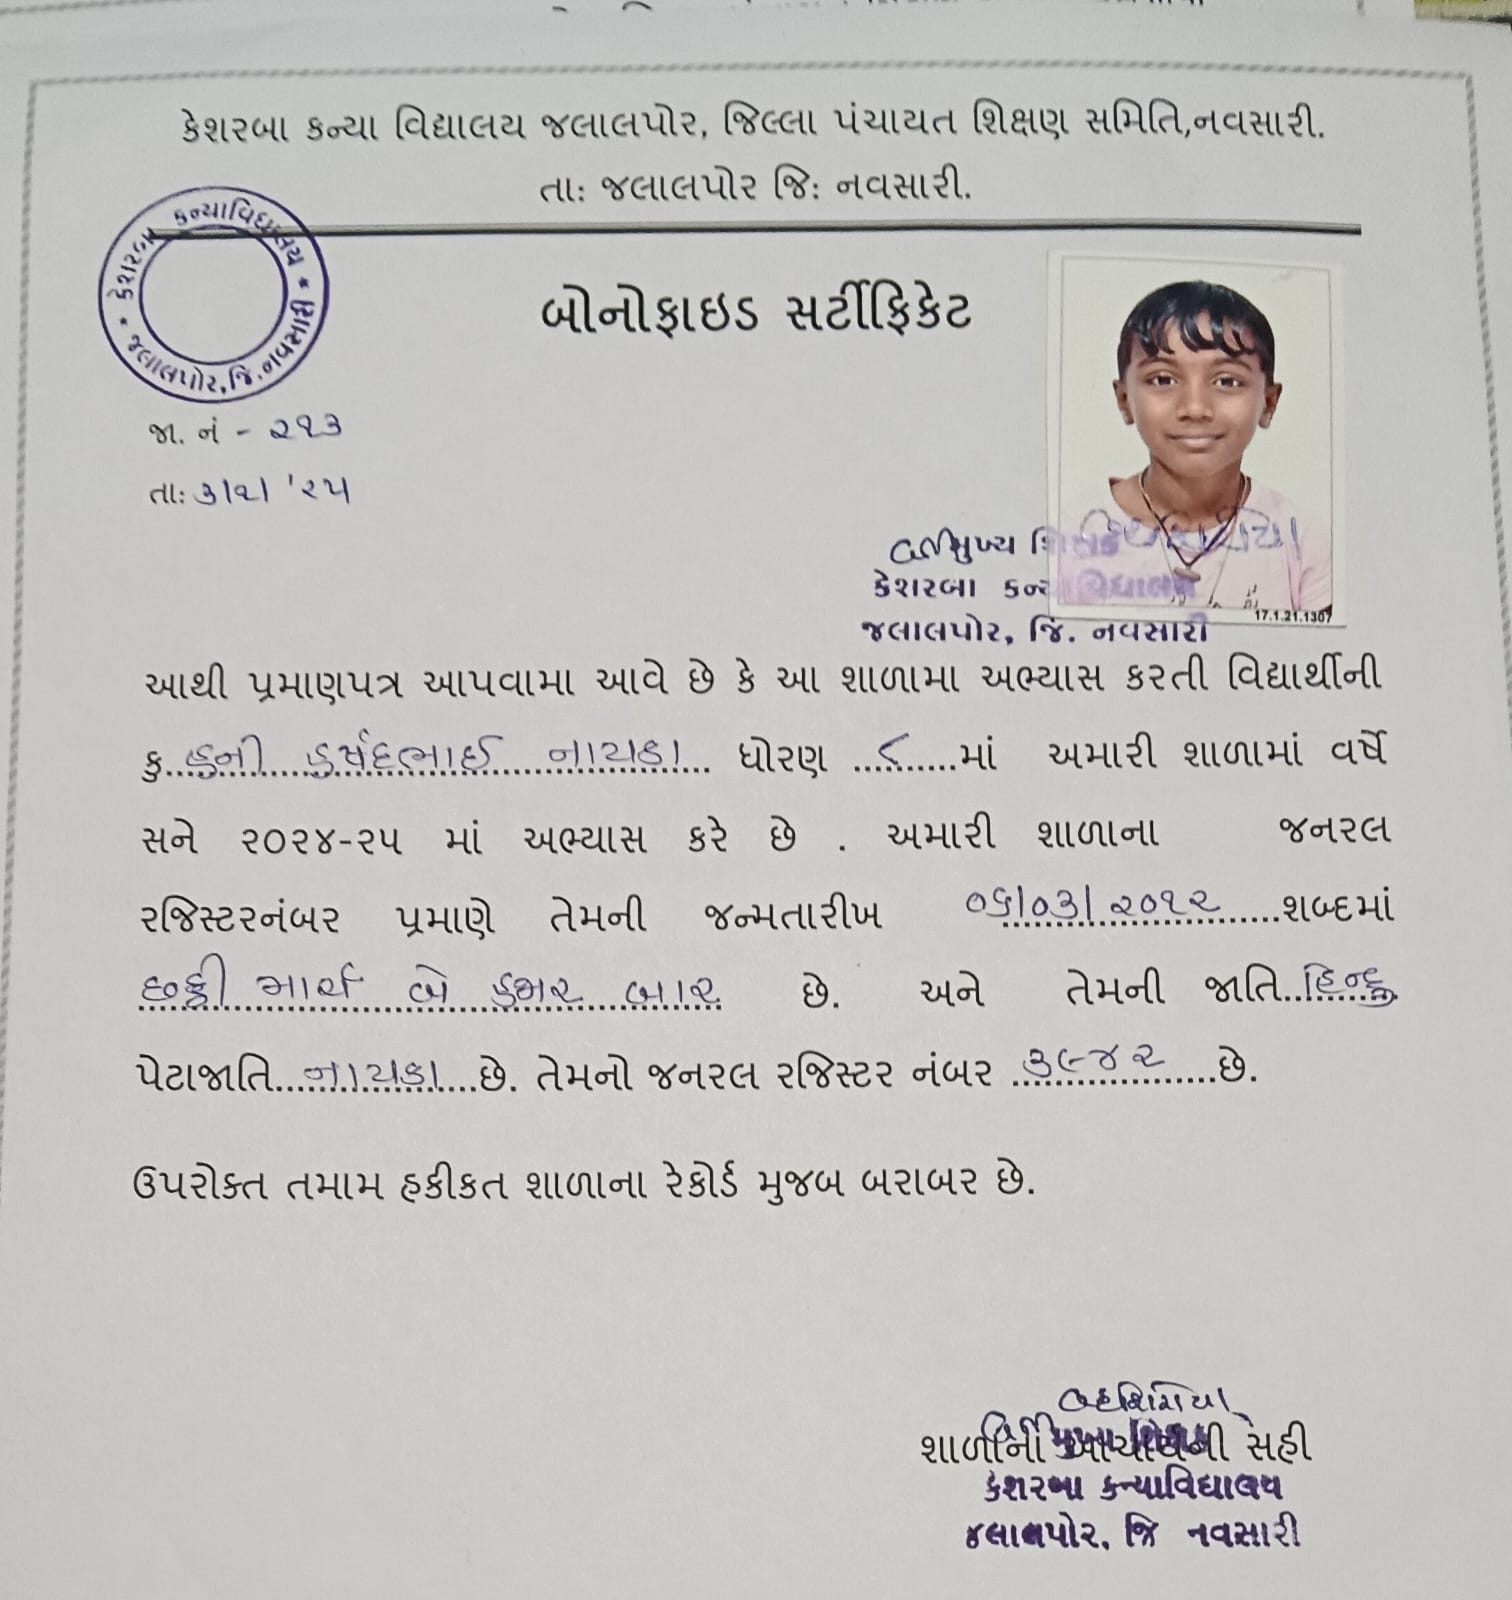 કેશરબા કન્યા વિદ્યાલય જલાલપોર, જિલ્લા પંચાયત શિક્ષણ સમિતિ,નવસારી.
તા: જલાલપોર જિ: નવસારી.
કેશરબા કન્યાવિદ્યાલય * જલાલપોર, જિ. નવસારી *
બોનોફાઇડ સર્ટીફિકેટ
જા. નં - ૨૧૩
તા: ૩/૨/'૨૫
મુખ્ય શિક્ષક
કેશરબા કન્યાવિદ્યાલય
17.1.21.1307
જલાલપોર, જિ. નવસારી
આથી પ્રમાણપત્ર આપવામા આવે છે કે આ શાળામા અભ્યાસ કરતી વિદ્યાર્થીની
કુ...હની હર્ષદભાઈ નાયકા... ધોરણ ...૮...માં અમારી શાળામાં વર્ષે
સને ૨૦૨૪-૨૫ માં અભ્યાસ કરે છે . અમારી શાળાના જનરલ
રજિસ્ટરનંબર પ્રમાણે તેમની જન્મતારીખ ૦૬/૦૩/૨૦૧૨...શબ્દમાં
છઠ્ઠી માર્ચ બે હજાર બાર છે. અને તેમની જાતિ..હિન્દુ
પેટાજાતિ...નાયકા...છે. તેમનો જનરલ રજિસ્ટર નંબર ...૩૯૪૨...છે.
ઉપરોક્ત તમામ હકીકત શાળાના રેકોર્ડ મુજબ બરાબર છે.
શાળાની આચાર્યની સહી
કેશરબા કન્યાવિદ્યાલય
જલાલપોર, જિ નવસારી